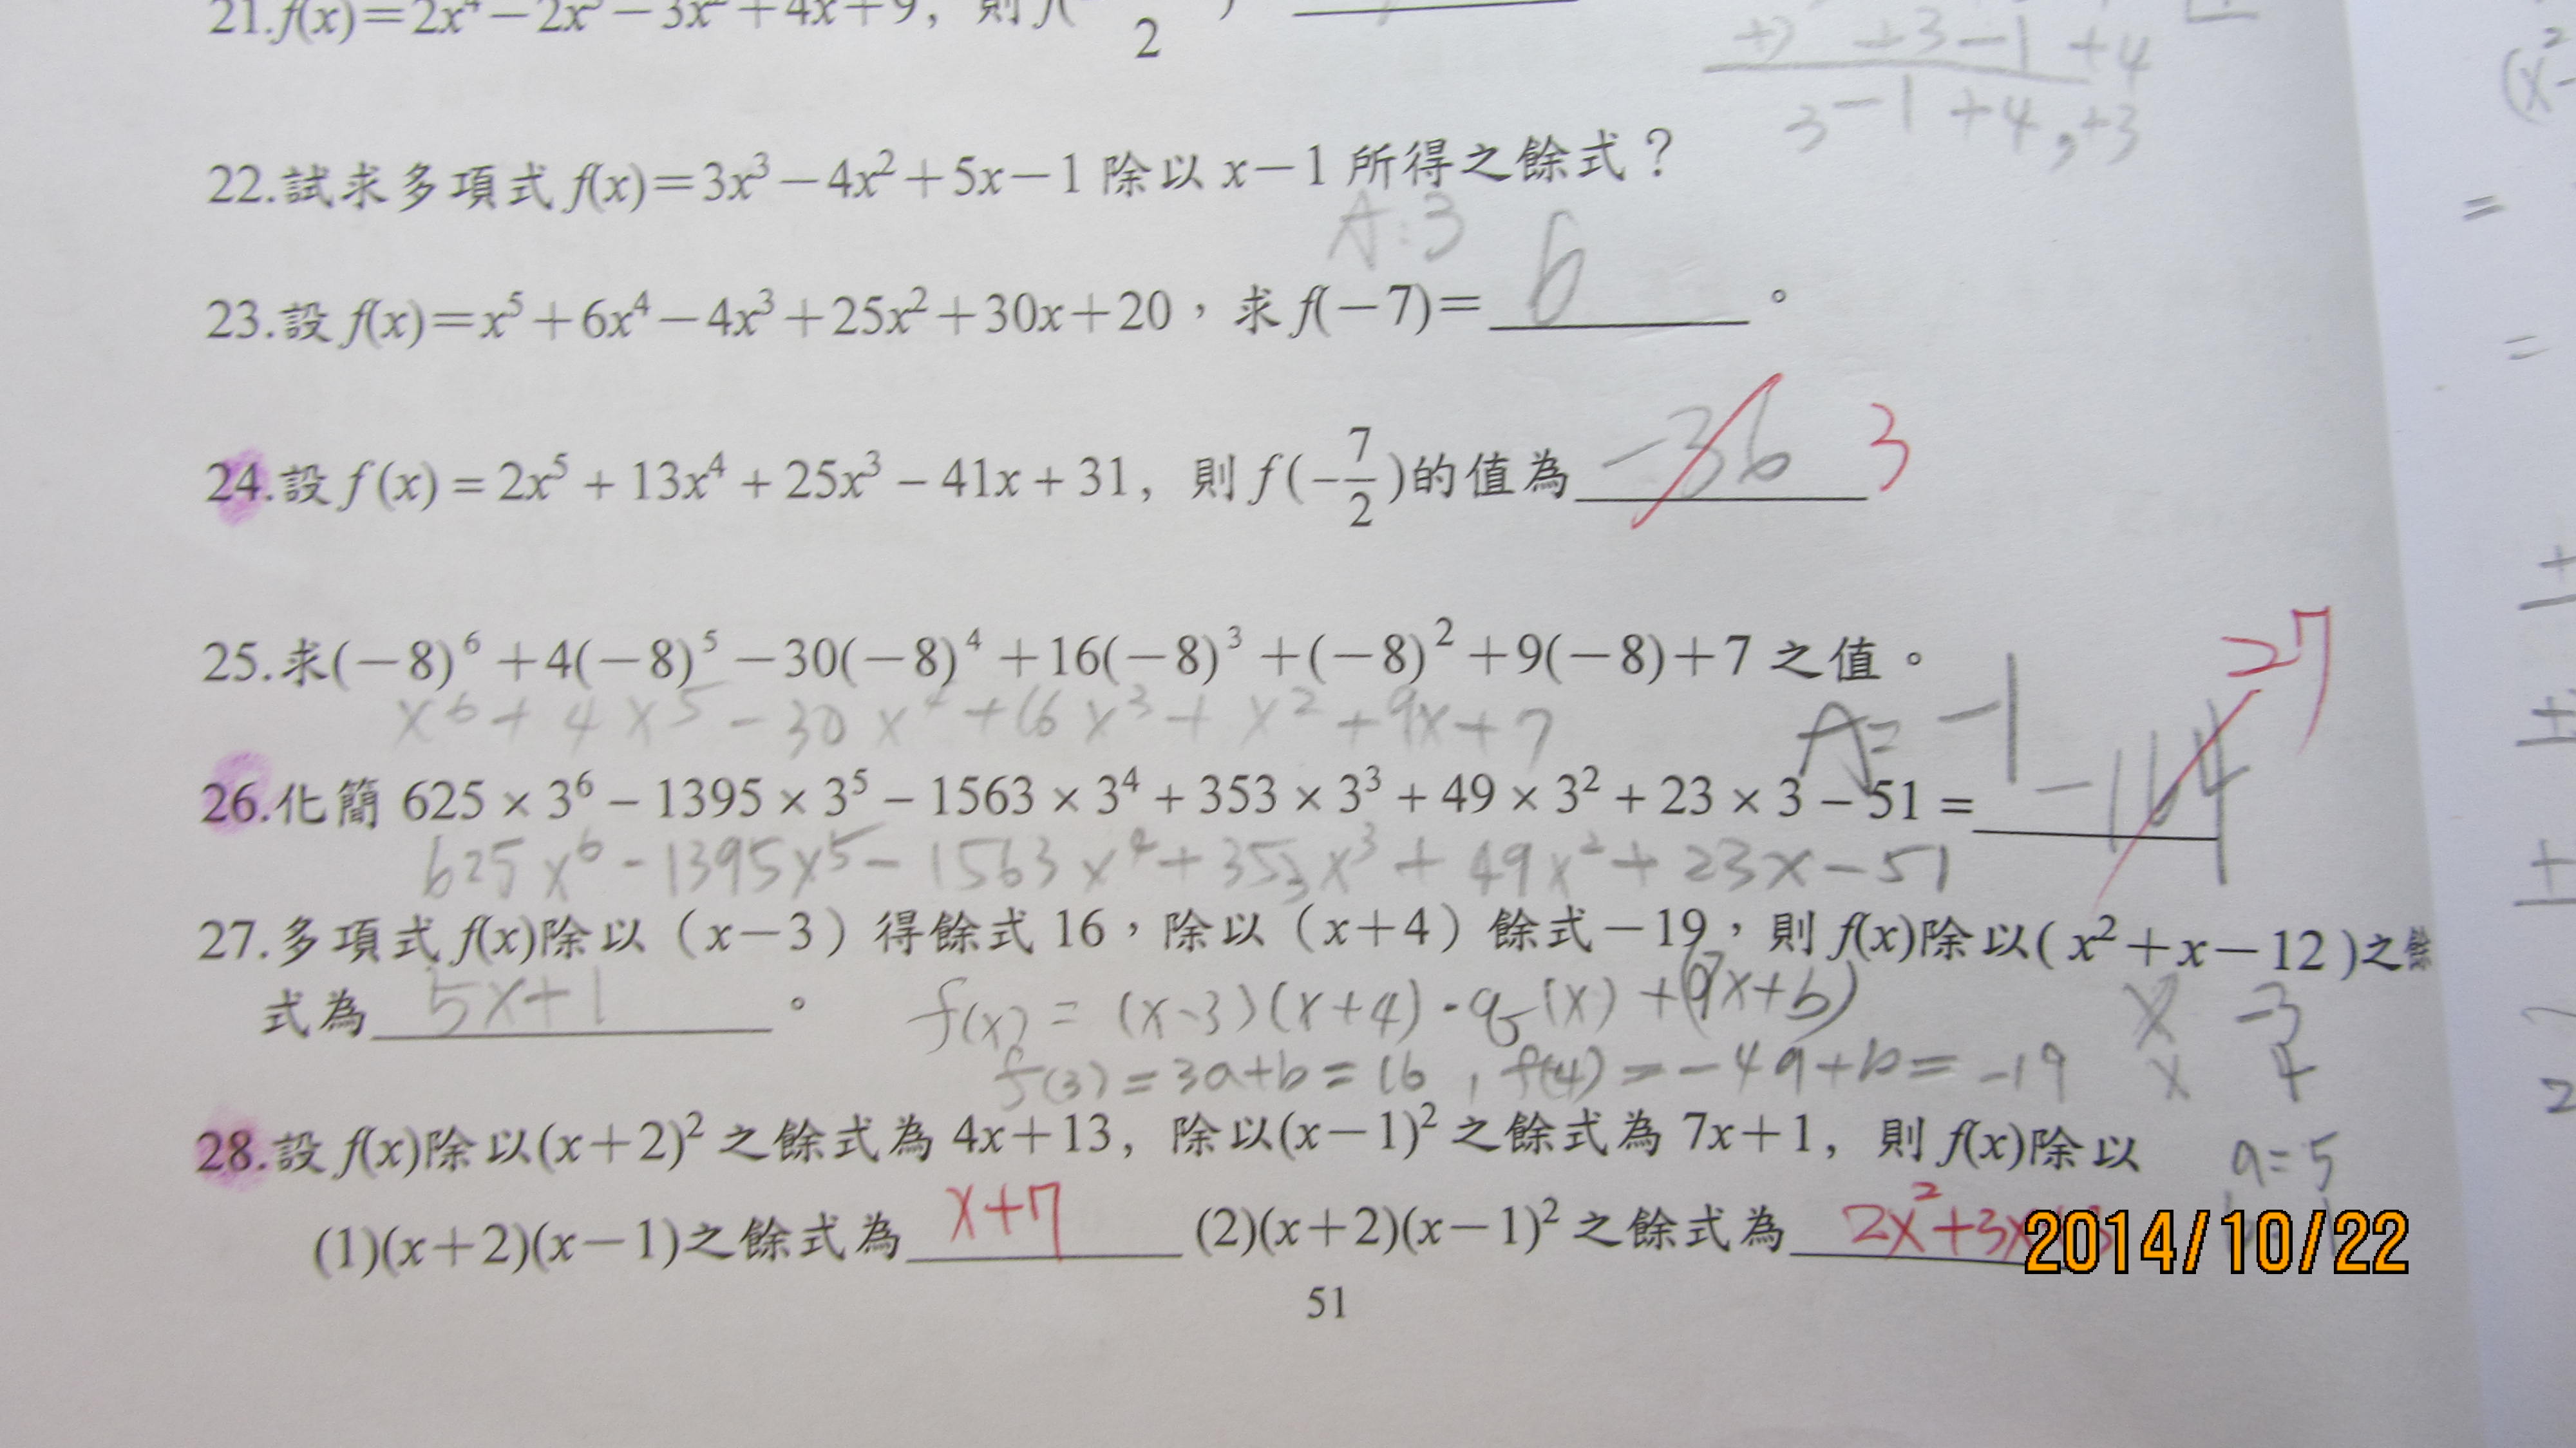 21.f(x)=2x⁴−2x³−3x²+4x+9，則 f(
2
+3−1+4
3−1+4,+3
22.試求多項式 f(x)=3x³−4x²+5x−1 除以 x−1 所得之餘式？
A:3
23.設 f(x)=x⁵+6x⁴−4x³+25x²+30x+20，求 f(−7)=6。
24.設 f(x)=2x⁵+13x⁴+25x³−41x+31，則 f(−7/2)的值為 −36 3
25.求(−8)⁶+4(−8)⁵−30(−8)⁴+16(−8)³+(−8)²+9(−8)+7 之值。
x⁶+4x⁵−30x⁴+16x³+x²+9x+7 A=−1
26.化簡 625×3⁶−1395×3⁵−1563×3⁴+353×3³+49×3²+23×3−51= −164 27
625x⁶−1395x⁵−1563x⁴+353x³+49x²+23x−51
27.多項式 f(x)除以（x−3）得餘式 16，除以（x+4）餘式−19，則 f(x)除以( x²+x−12 )之餘
式為 5x+1 。 f(x)=(x−3)(x+4)·q(x)+(ax+b) x −3
f(3)=3a+b=16 , f(4)=−4a+b=−19 x 4
28.設 f(x)除以(x+2)² 之餘式為 4x+13，除以(x−1)² 之餘式為 7x+1，則 f(x)除以 a=5
(1)(x+2)(x−1)之餘式為 x+7 (2)(x+2)(x−1)² 之餘式為 2x²+3x
2014/10/22
51